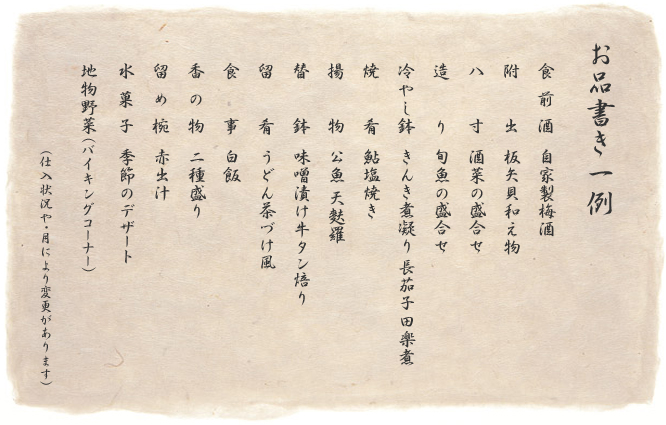 お品書き一例
食前酒 自家製梅酒
附出 板矢貝和え物
八寸 酒菜の盛合せ
造り 旬魚の盛合せ
冷やし鉢 きんき煮凝り 長茄子田楽煮
焼肴 鮎塩焼き
揚物 公魚天麩羅
替鉢 味噌漬け牛タン焙り
留肴 うどん茶づけ風
食事 白飯
香の物 二種盛り
留め椀 赤出汁
水菓子 季節のデザート
地物野菜(バイキングコーナー)
(仕入状況や・月により変更があります)